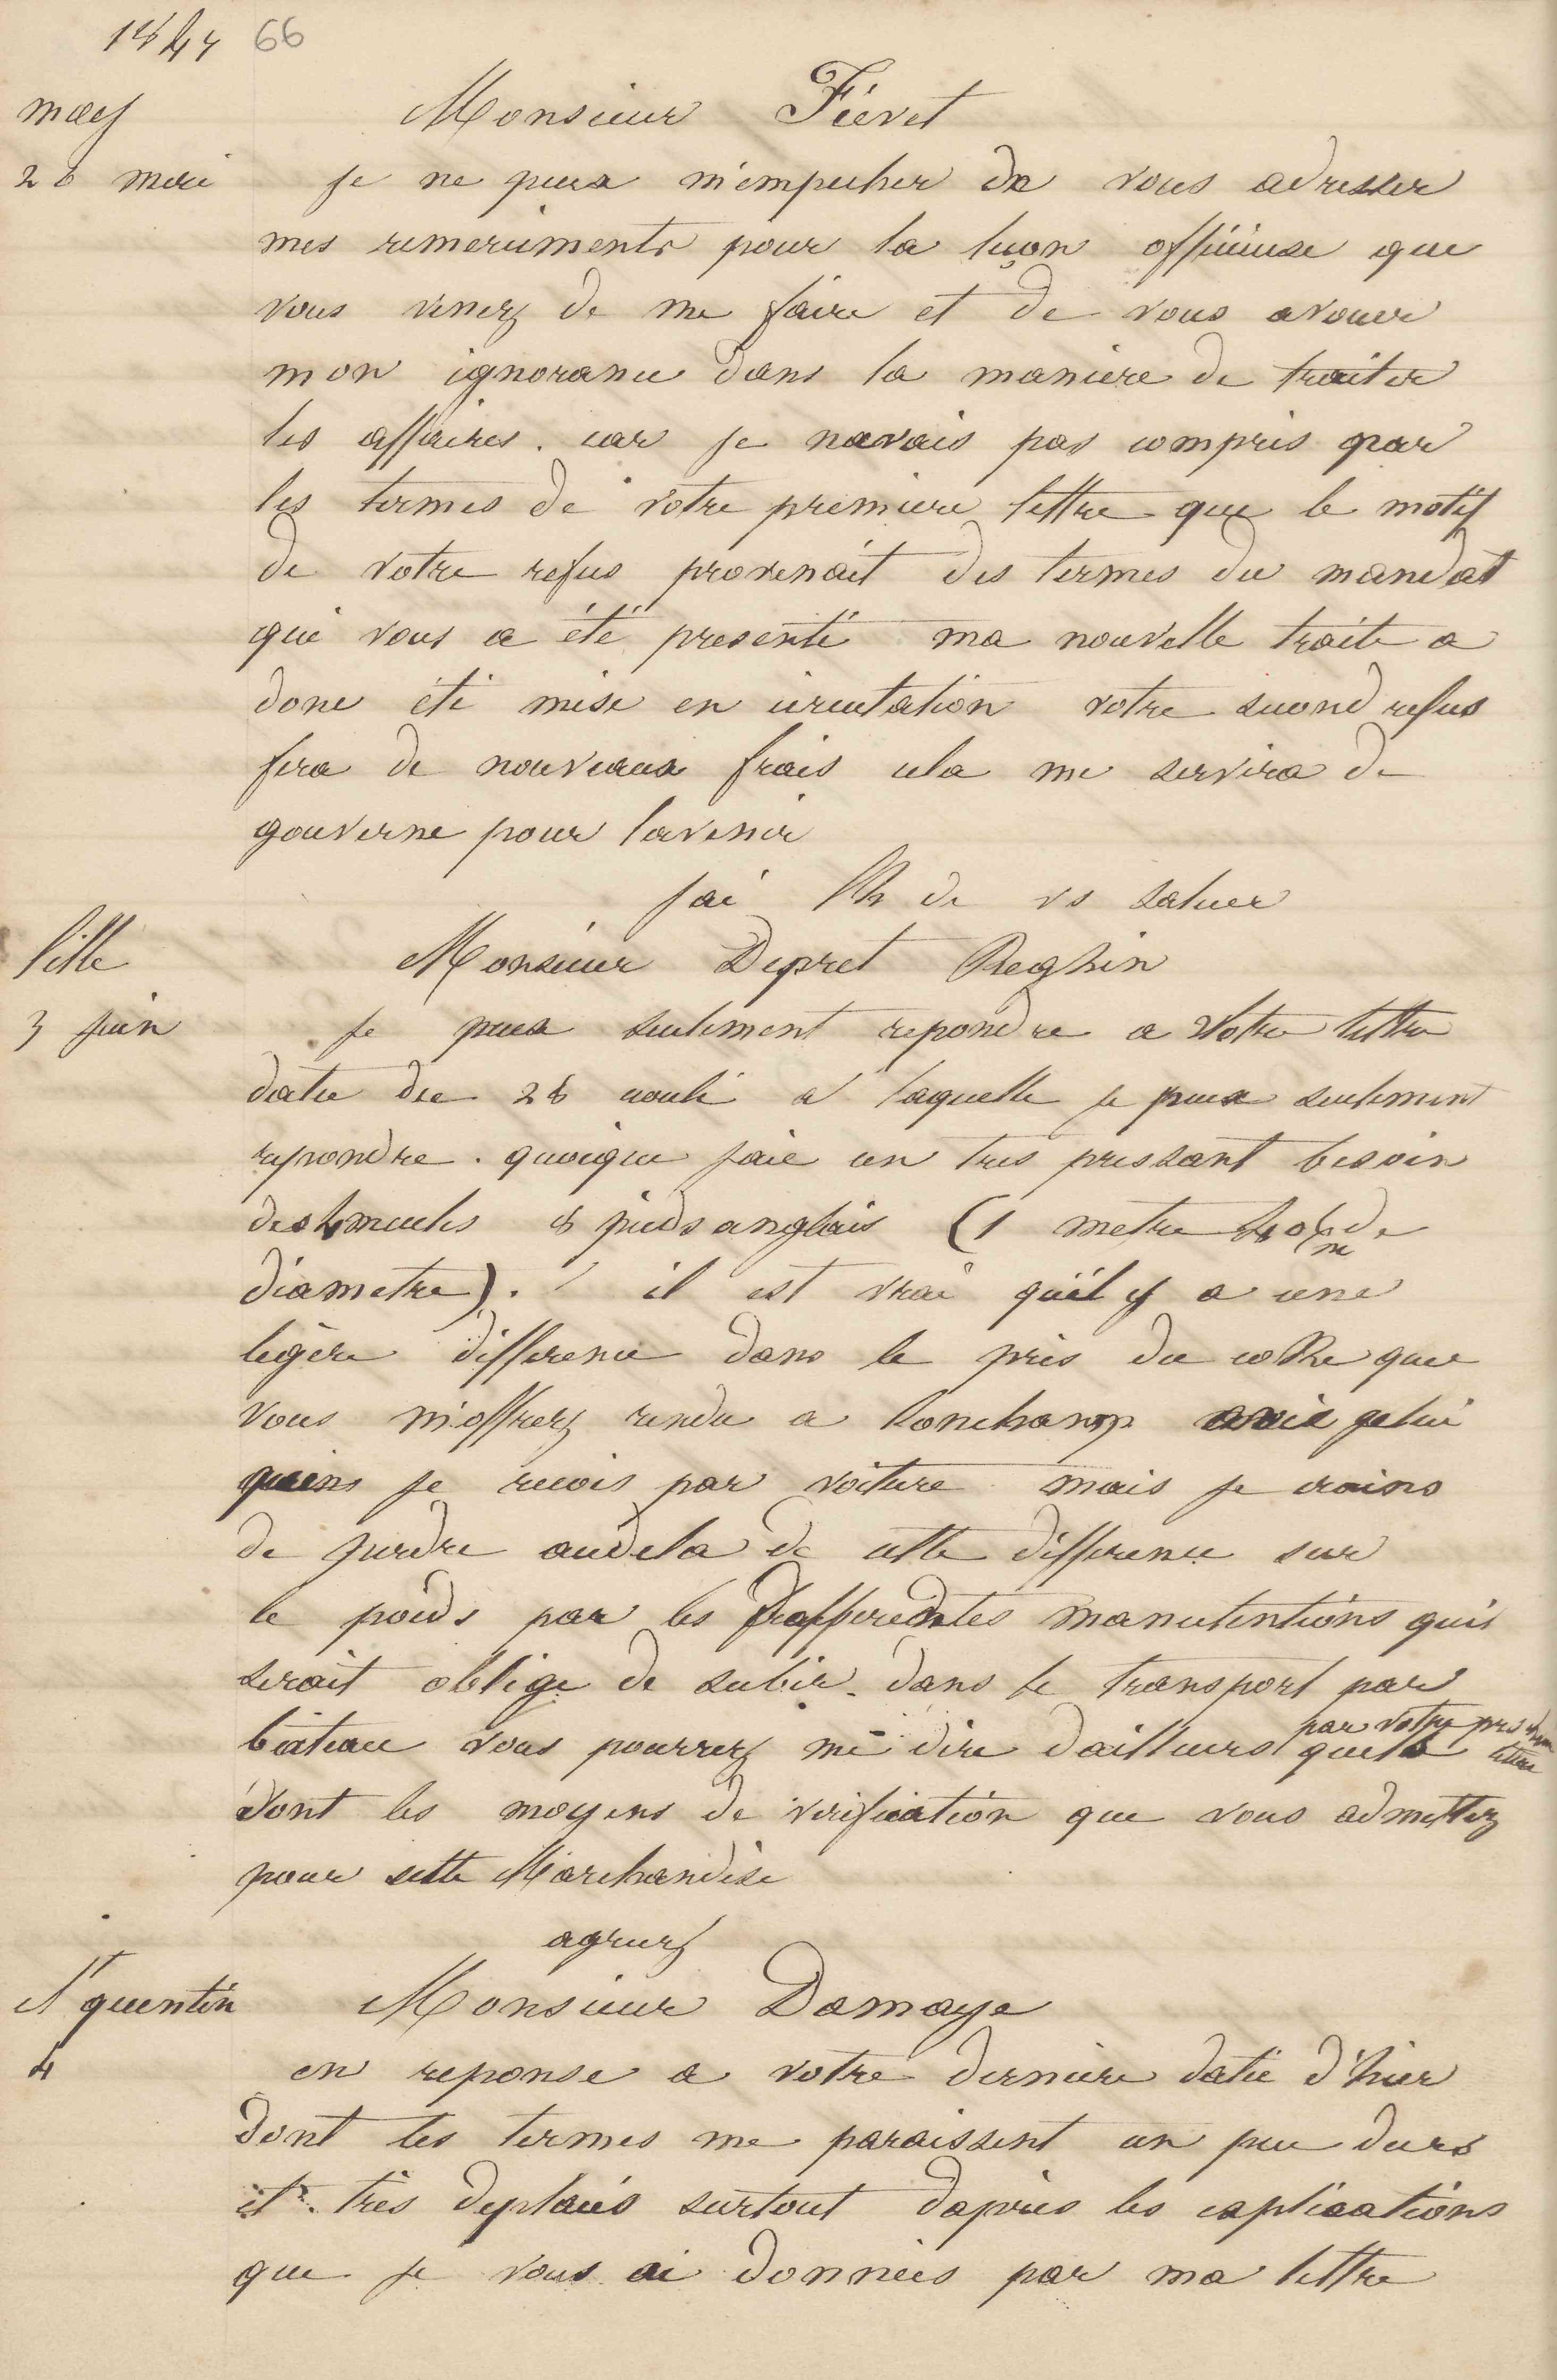 1847 66
Monsieur Fievet
28 mai je ne peux m'empecher de vous adresser
mes remerciments pour la leçon officieuse que
vous venez de me faire et de vous avouer
mon ignorance dans la maniere de traiter
les affaires. car je navais pas compris par
les termes de votre premiere lettre que le motif
de votre refus provenait des termes du mandat
qui vous a été presenté ma nouvelle traite a
donc été mise en circulation votre second refus
fera de nouveaux frais cela me servira de
gouverne pour lavenir
jai lh de vs saluer
Lille Monsieur Depret Reghin
3 juin je peux seulement repondre a votre lettre
datée du 28 coulé a laquelle je peux seulement
repondre. quoique jaie un tres pressant besoin
des 4 meules 8 pieds anglais (1 metre 40 c de
diametre). il est vrai qu'il y a une
legère difference dans le prix du coke que
vous m'offrez rendu a Lonchamp avec celui
que je recois par voiture mais je crains
de perdre audela de cette difference sur
le poids par les differentes manutentions quil
serait oblige de subir dans le transport par
bateau vous pourrez me dire dailleurs par votre prochaine lettre quels
sont les moyens de verification que vous admettez
pour cette Marchandise
agreez
St quentin Monsieur Damaye
4 en reponse a votre derniere datée d'hier
dont les termes me paraissent un peu durs
et très deplacés surtout dapres les explications
que je vous ai données par ma lettre